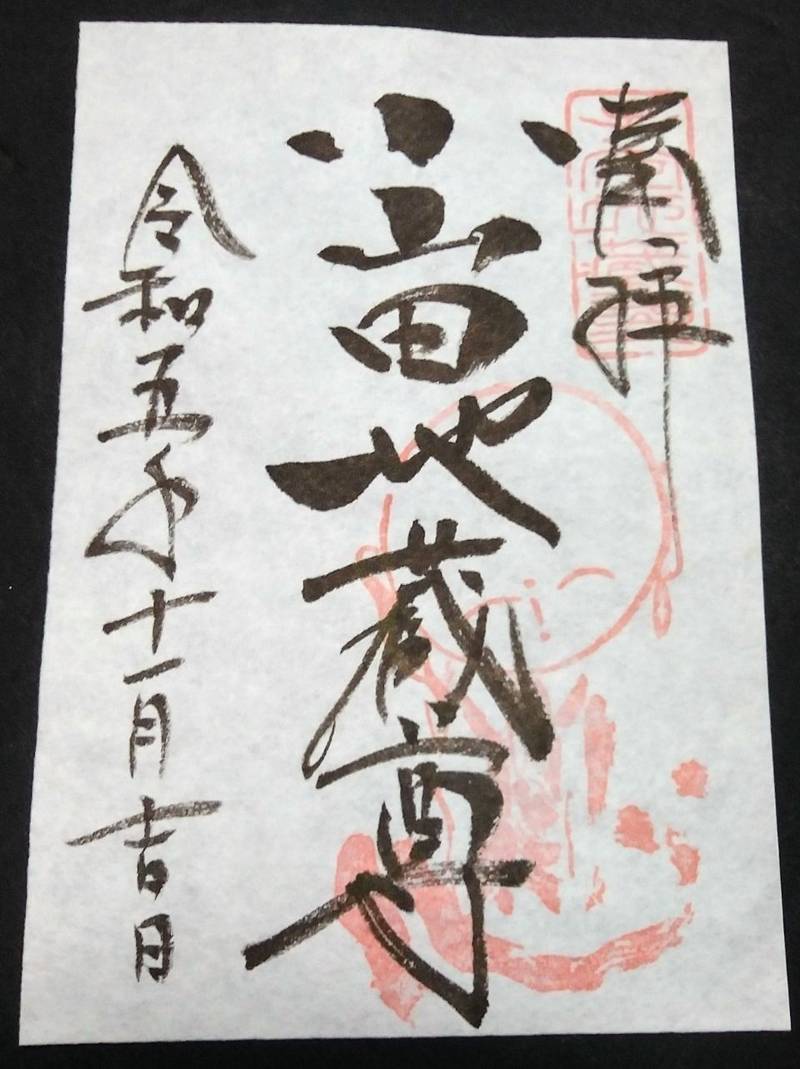 奉拝
小山田地蔵尊
令和五年十一月吉日